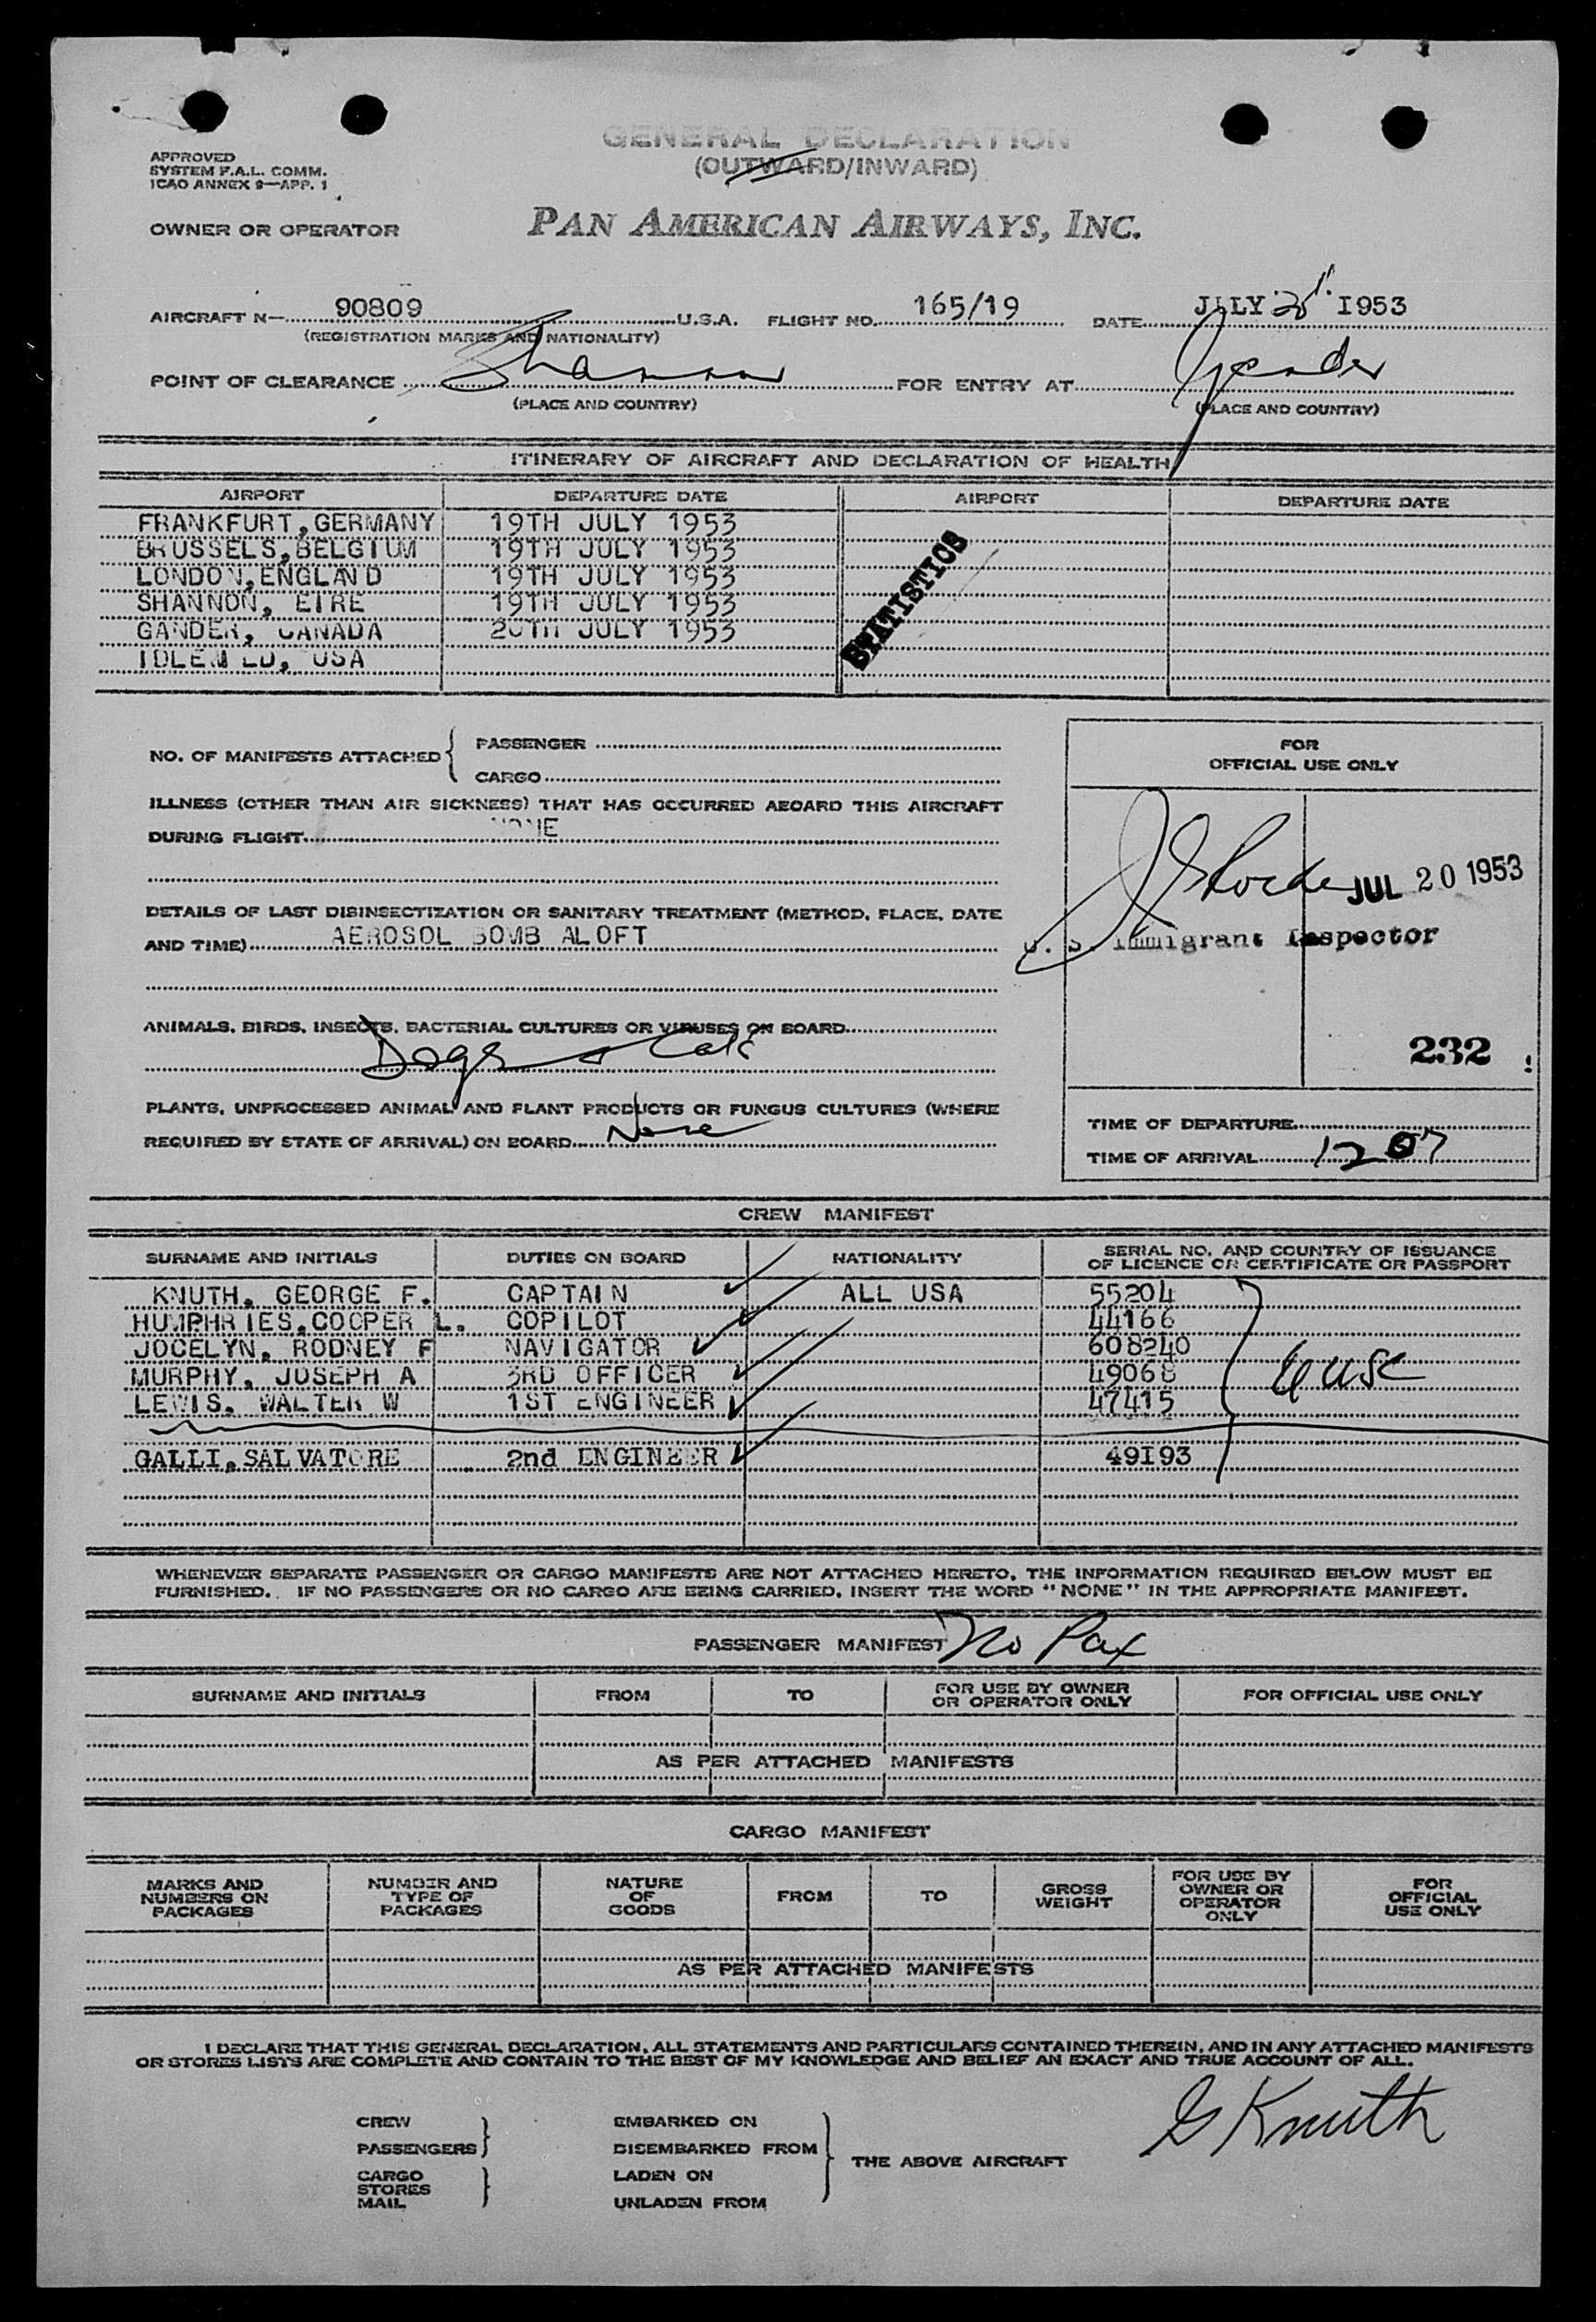 GENERAL DECLARATION
(OUTWARD/INWARD)
APPROVED
SYSTEM F.A.L. COMM.
ICAO ANNEX 9—APP. 1
OWNER OR OPERATOR PAN AMERICAN AIRWAYS, INC.
AIRCRAFT N— 90809 U.S.A. FLIGHT NO. 165/19 DATE JULY 1953
(REGISTRATION MARKS AND NATIONALITY)
POINT OF CLEARANCE Shannon FOR ENTRY AT Gander
(PLACE AND COUNTRY) (PLACE AND COUNTRY)
ITINERARY OF AIRCRAFT AND DECLARATION OF HEALTH
AIRPORT DEPARTURE DATE AIRPORT DEPARTURE DATE
FRANKFURT, GERMANY 19TH JULY 1953
BRUSSELS, BELGIUM 19TH JULY 1953
LONDON, ENGLAND 19TH JULY 1953
SHANNON, EIRE 19TH JULY 1953
GANDER, CANADA 20TH JULY 1953
IDLEWILD, USA
STATISTICS
NO. OF MANIFESTS ATTACHED { PASSENGER
CARGO
ILLNESS (OTHER THAN AIR SICKNESS) THAT HAS OCCURRED ABOARD THIS AIRCRAFT
DURING FLIGHT NONE
DETAILS OF LAST DISINSECTIZATION OR SANITARY TREATMENT (METHOD, PLACE, DATE
AND TIME) AEROSOL BOMB ALOFT
ANIMALS, BIRDS, INSECTS, BACTERIAL CULTURES OR VIRUSES ON BOARD
Dogs & Cats
PLANTS, UNPROCESSED ANIMAL AND PLANT PRODUCTS OR FUNGUS CULTURES (WHERE
REQUIRED BY STATE OF ARRIVAL) ON BOARD None
FOR
OFFICIAL USE ONLY
JUL 20 1953
U. S. Immigrant Inspector
232
TIME OF DEPARTURE
TIME OF ARRIVAL 1207
CREW MANIFEST
SURNAME AND INITIALS DUTIES ON BOARD NATIONALITY SERIAL NO. AND COUNTRY OF ISSUANCE
OF LICENCE OR CERTIFICATE OR PASSPORT
KNUTH, GEORGE F. CAPTAIN ALL USA 55204
HUMPHRIES, COOPER L. COPILOT 44166
JOCELYN, RODNEY F NAVIGATOR 608240
MURPHY, JOSEPH A 3RD OFFICER 49068
LEWIS, WALTER W 1ST ENGINEER 47415
6 USC
GALLI, SALVATORE 2nd ENGINEER 49I93
WHENEVER SEPARATE PASSENGER OR CARGO MANIFESTS ARE NOT ATTACHED HERETO, THE INFORMATION REQUIRED BELOW MUST BE
FURNISHED. IF NO PASSENGERS OR NO CARGO ARE BEING CARRIED, INSERT THE WORD "NONE" IN THE APPROPRIATE MANIFEST.
PASSENGER MANIFEST No Pax
SURNAME AND INITIALS FROM TO FOR USE BY OWNER
OR OPERATOR ONLY FOR OFFICIAL USE ONLY
AS PER ATTACHED MANIFESTS
CARGO MANIFEST
MARKS AND
NUMBERS ON
PACKAGES
NUMBER AND
TYPE OF
PACKAGES
NATURE
OF
GOODS
FROM
TO
GROSS
WEIGHT
FOR USE BY
OWNER OR
OPERATOR
ONLY
FOR
OFFICIAL
USE ONLY
AS PER ATTACHED MANIFESTS
I DECLARE THAT THIS GENERAL DECLARATION, ALL STATEMENTS AND PARTICULARS CONTAINED THEREIN, AND IN ANY ATTACHED MANIFESTS
OR STORES LISTS ARE COMPLETE AND CONTAIN TO THE BEST OF MY KNOWLEDGE AND BELIEF AN EXACT AND TRUE ACCOUNT OF ALL.
G Knuth
CREW EMBARKED ON
PASSENGERS DISEMBARKED FROM
THE ABOVE AIRCRAFT
CARGO LADEN ON
STORES
MAIL UNLADEN FROM